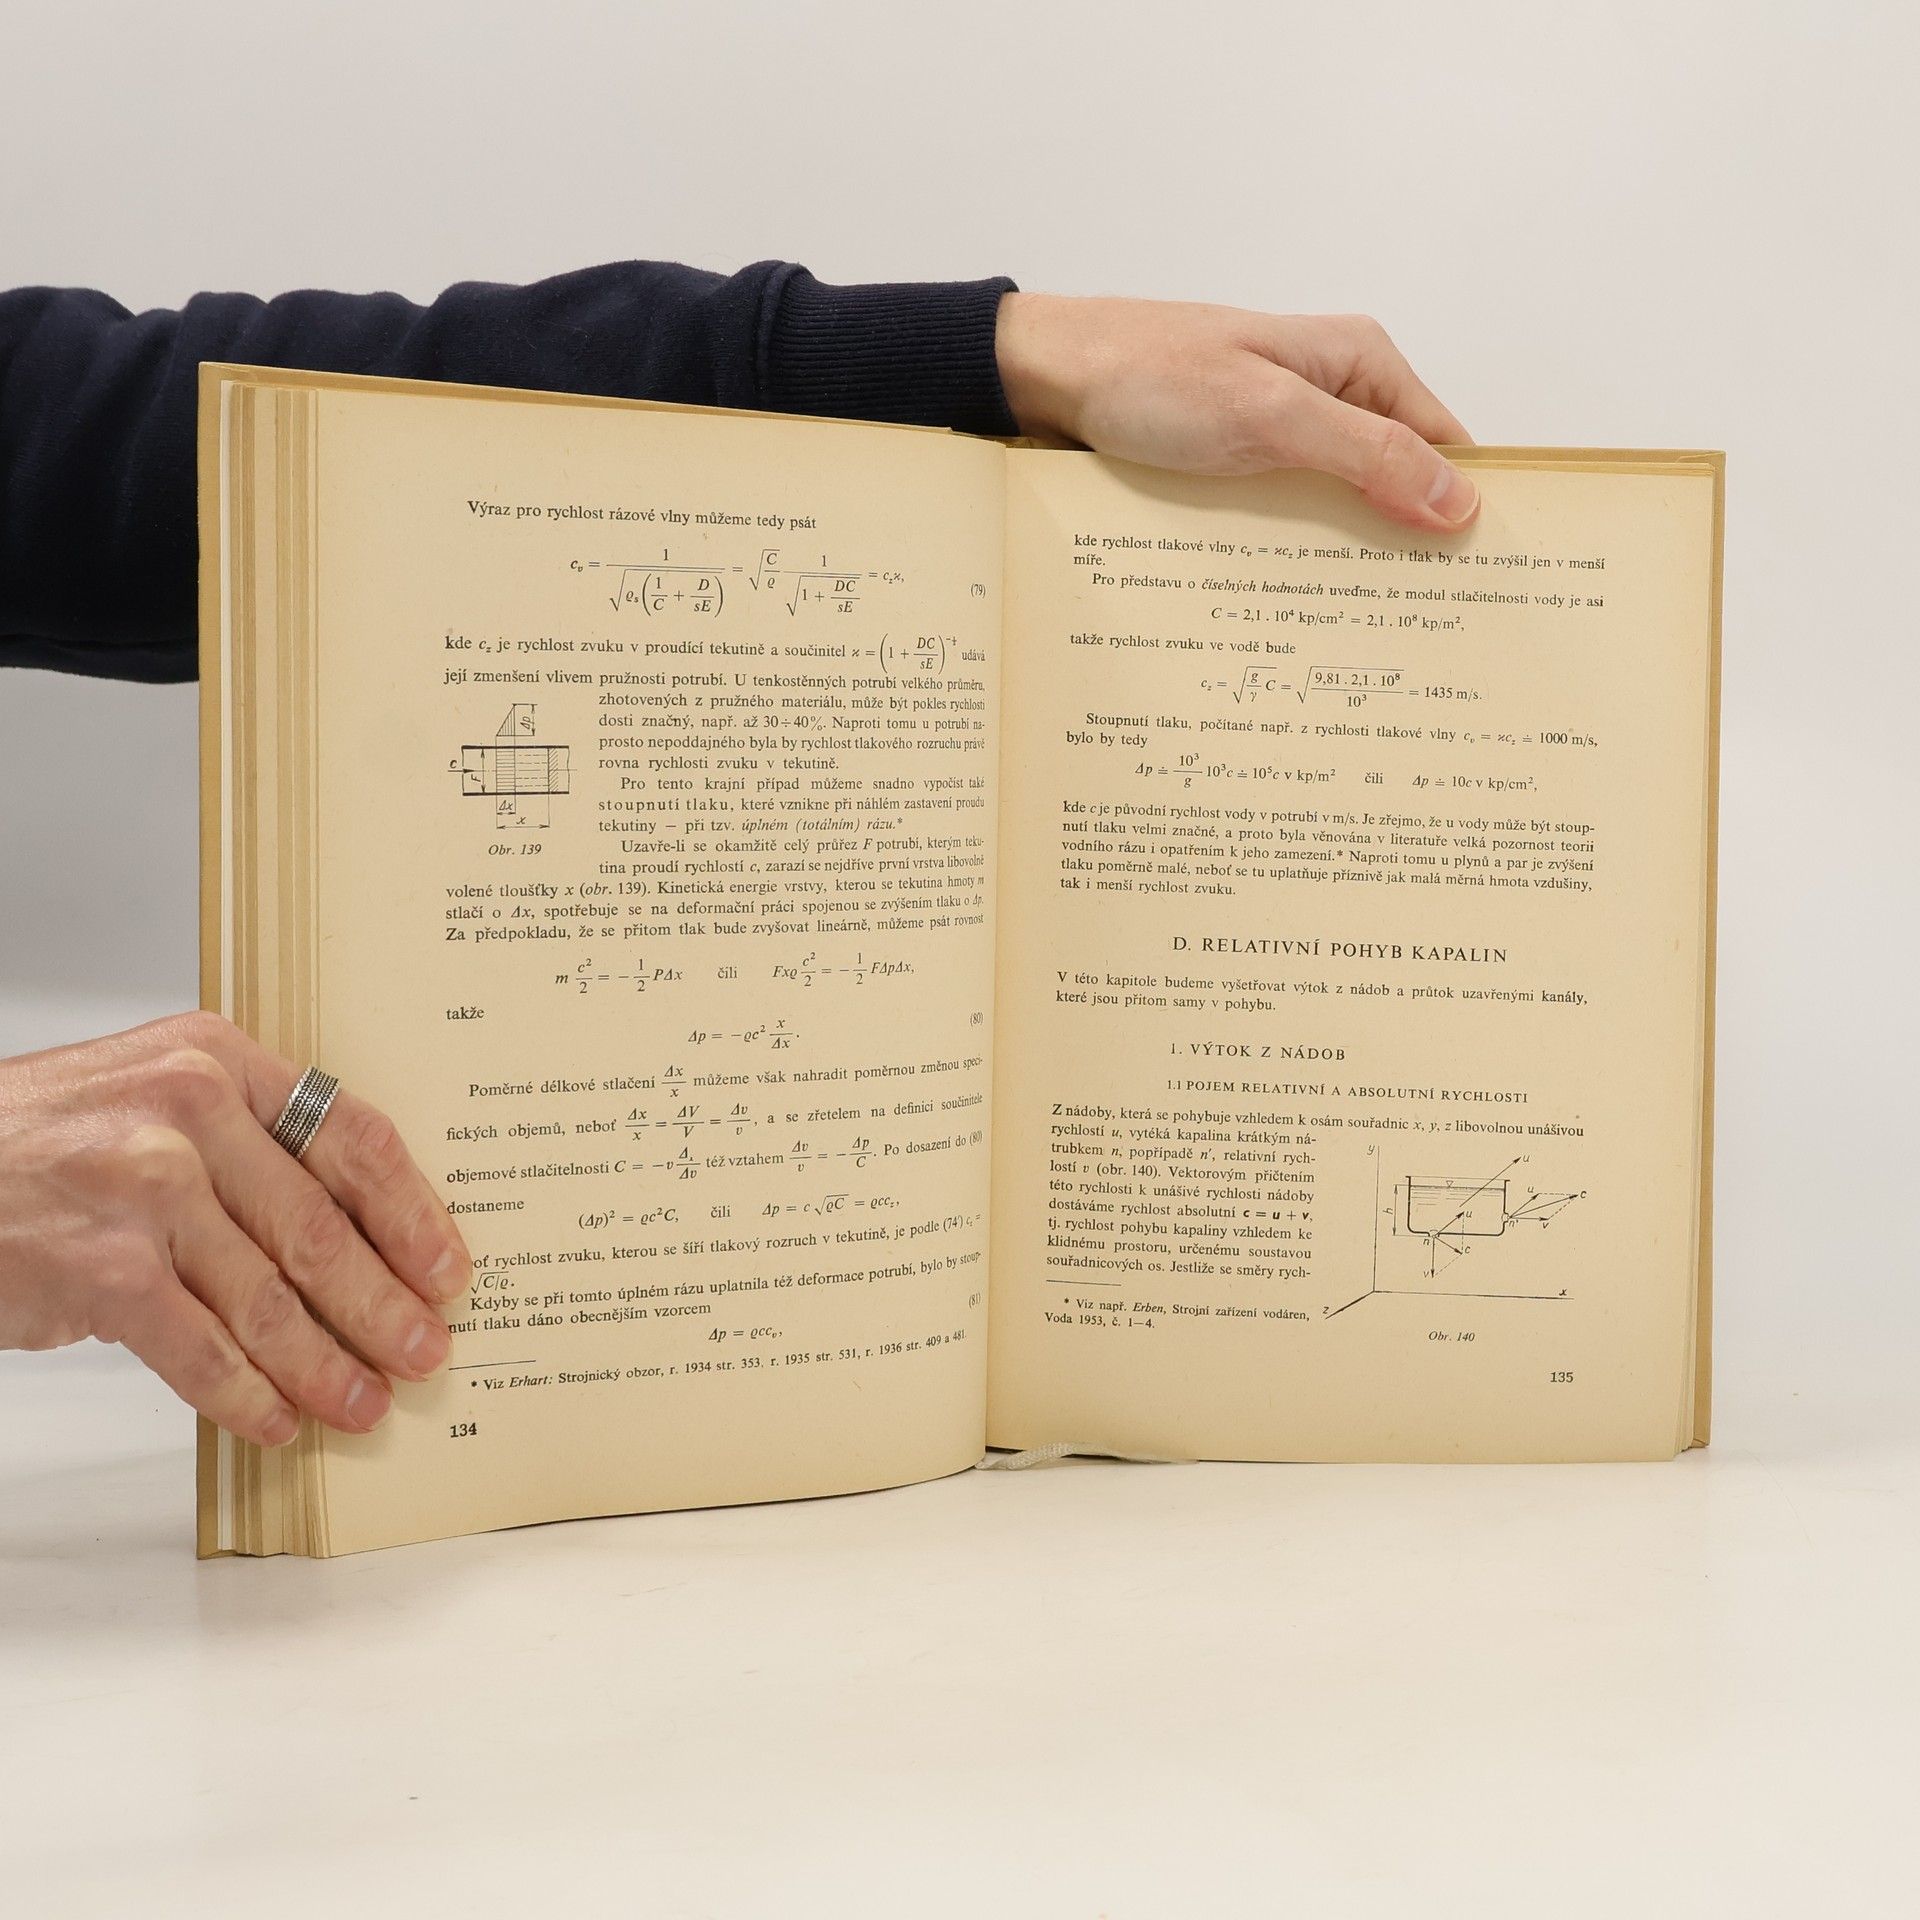 Výraz pro rychlost rázové vlny můžeme tedy psát
c_v = 1 / √(ϱ_s (1/C + D/sE)) = √(C/ϱ) 1 / √(1 + DC/sE) = c_z ϰ, (79)
kde c_z je rychlost zvuku v proudící tekutině a součinitel ϰ = (1 + DC/sE)^(-½) udává
její zmenšení vlivem pružnosti potrubí. U tenkostěnných potrubí velkého průměru,
zhotovených z pružného materiálu, může být pokles rychlosti
dosti značný, např. až 30÷40%. Naproti tomu u potrubí na-
prosto nepoddajného byla by rychlost tlakového rozruchu právě
rovna rychlosti zvuku v tekutině.
Pro tento krajní případ můžeme snadno vypočíst také
stoupnutí tlaku, které vznikne při náhlém zastavení proudu
tekutiny — při tzv. úplném (totálním) rázu.*
Δp
c
F
Δx
x
Obr. 139
Uzavře-li se okamžitě celý průřez F potrubí, kterým teku-
tina proudí rychlostí c, zarazí se nejdříve první vrstva libovolně
volené tloušťky x (obr. 139). Kinetická energie vrstvy, kterou se tekutina hmoty m
stlačí o Δx, spotřebuje se na deformační práci spojenou se zvýšením tlaku o Δp.
Za předpokladu, že se přitom tlak bude zvyšovat lineárně, můžeme psát rovnost
m c²/2 = − 1/2 PΔx čili Fxϱ c²/2 = − 1/2 FΔpΔx,
takže
Δp = −ϱc² x/Δx. (80)
Poměrné délkové stlačení Δx/x můžeme však nahradit poměrnou změnou speci-
fických objemů, neboť Δx/x = ΔV/V = Δv/v, a se zřetelem na definici součinitele
objemové stlačitelnosti C = −v Δ./Δv též vztahem Δv/v = − Δp/C. Po dosazení do (80)
dostaneme
(Δp)² = ϱc²C, čili Δp = c √ϱC = ϱcc_z,
oť rychlost zvuku, kterou se šíří tlakový rozruch v tekutině, je podle (74') c_z =
√C/ϱ.
Kdyby se při tomto úplném rázu uplatnila též deformace potrubí, bylo by stoup-
nutí tlaku dáno obecnějším vzorcem
Δp = ϱcc_v, (81)
* Viz Erhart: Strojnický obzor, r. 1934 str. 353, r. 1935 str. 531, r. 1936 str. 409 a 481.
134
kde rychlost tlakové vlny c_v = ϰc_z je menší. Proto i tlak by se tu zvýšil jen v menší
míře.
Pro představu o číselných hodnotách uveďme, že modul stlačitelnosti vody je asi
C = 2,1 . 10⁴ kp/cm² = 2,1 . 10⁸ kp/m²,
takže rychlost zvuku ve vodě bude
c_z = √(g/γ C) = √(9,81 . 2,1 . 10⁸ / 10³) = 1435 m/s.
Stoupnutí tlaku, počítané např. z rychlosti tlakové vlny c_v = ϰc_z ≐ 1000 m/s,
bylo by tedy
Δp ≐ 10³/g 10³c ≐ 10⁵c v kp/m² čili Δp ≐ 10c v kp/cm²,
kde c je původní rychlost vody v potrubí v m/s. Je zřejmo, že u vody může být stoup-
nutí tlaku velmi značné, a proto byla věnována v literatuře velká pozornost teorii
vodního rázu i opatřením k jeho zamezení.* Naproti tomu u plynů a par je zvýšení
tlaku poměrně malé, neboť se tu uplatňuje příznivě jak malá měrná hmota vzdušiny,
tak i menší rychlost zvuku.
D. RELATIVNÍ POHYB KAPALIN
V této kapitole budeme vyšetřovat výtok z nádob a průtok uzavřenými kanály,
které jsou přitom samy v pohybu.
1. VÝTOK Z NÁDOB
1.1 POJEM RELATIVNÍ A ABSOLUTNÍ RYCHLOSTI
Z nádoby, která se pohybuje vzhledem k osám souřadnic x, y, z libovolnou unášivou
rychlostí u, vytéká kapalina krátkým ná-
trubkem n, popřípadě n', relativní rych-
lostí v (obr. 140). Vektorovým přičtením
této rychlosti k unášivé rychlosti nádoby
dostáváme rychlost absolutní c = u + v,
tj. rychlost pohybu kapaliny vzhledem ke
klidnému prostoru, určenému soustavou
souřadnicových os. Jestliže se směry rych-
* Viz např. Erben, Strojní zařízení vodáren,
Voda 1953, č. 1—4.
y
u
u
c
h
u
n'
v
n
c
v
x
z
Obr. 140
135